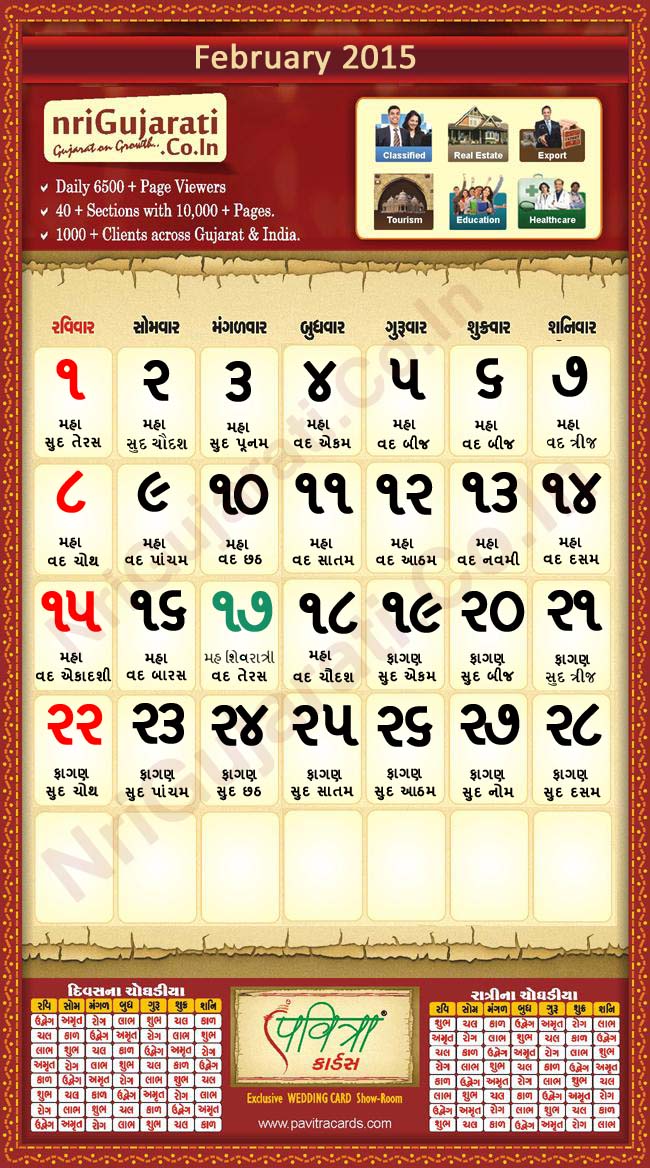 February 2015
nriGujarati
Gujarat on Growth..
.Co.In
Daily 6500 + Page Viewers
40 + Sections with 10,000 + Pages.
1000 + Clients across Gujarat & India.
Classified Real Estate Export
Tourism Education Healthcare
રવિવાર સોમવાર મંગળવાર બુધવાર ગુરૂવાર શુક્રવાર શનિવાર
૧ ૨ ૩ ૪ ૫ ૬ ૭
મહા મહા મહા મહા મહા મહા મહા
સુદ તેરસ સુદ ચૌદશ સુદ પૂનમ વદ એકમ વદ બીજ વદ બીજ વદ ત્રીજ
૮ ૯ ૧૦ ૧૧ ૧૨ ૧૩ ૧૪
મહા મહા મહા મહા મહા મહા મહા
વદ ચોથ વદ પાંચમ વદ છઠ વદ સાતમ વદ આઠમ વદ નવમી વદ દસમ
૧૫ ૧૬ ૧૭ ૧૮ ૧૯ ૨૦ ૨૧
મહા મહા મહ શિવરાત્રી મહા ફાગણ ફાગણ ફાગણ
વદ એકાદશી વદ બારસ વદ તેરસ વદ ચૌદશ સુદ એકમ સુદ બીજ સુદ ત્રીજ
૨૨ ૨૩ ૨૪ ૨૫ ૨૬ ૨૭ ૨૮
ફાગણ ફાગણ ફાગણ ફાગણ ફાગણ ફાગણ ફાગણ
સુદ ચોથ સુદ પાંચમ સુદ છઠ સુદ સાતમ સુદ આઠમ સુદ નોમ સુદ દસમ
NriGujarati.Co.In
NriGujarati.Co.In
દિવસના ચોઘડીયા
રવિ સોમ મંગળ બુધ ગુરૂ શુક્ર શનિ
ઉદ્વેગ અમૃત રોગ લાભ શુભ ચલ કાળ
ચલ કાળ ઉદ્વેગ અમૃત રોગ લાભ શુભ
લાભ શુભ ચલ કાળ ઉદ્વેગ અમૃત રોગ
અમૃત રોગ લાભ શુભ ચલ કાળ ઉદ્વેગ
કાળ ઉદ્વેગ અમૃત રોગ લાભ શુભ ચલ
શુભ ચલ કાળ ઉદ્વેગ અમૃત રોગ લાભ
રોગ લાભ શુભ ચલ કાળ ઉદ્વેગ અમૃત
ઉદ્વેગ અમૃત રોગ લાભ શુભ ચલ કાળ
પવિત્રા®
કાર્ડસ
Exclusive WEDDING CARD Show-Room
www.pavitracards.com
રાત્રીના ચોઘડીયા
રવિ સોમ મંગળ બુધ ગુરૂ શુક્ર શનિ
શુભ ચલ કાળ ઉદ્વેગ અમૃત રોગ લાભ
અમૃત રોગ લાભ શુભ ચલ કાળ ઉદ્વેગ
ચલ કાળ ઉદ્વેગ અમૃત રોગ લાભ શુભ
રોગ લાભ શુભ ચલ કાળ ઉદ્વેગ અમૃત
કાળ ઉદ્વેગ અમૃત રોગ લાભ શુભ ચલ
લાભ શુભ ચલ કાળ ઉદ્વેગ અમૃત રોગ
ઉદ્વેગ અમૃત રોગ લાભ શુભ ચલ કાળ
શુભ ચલ કાળ ઉદ્વેગ અમૃત રોગ લાભ